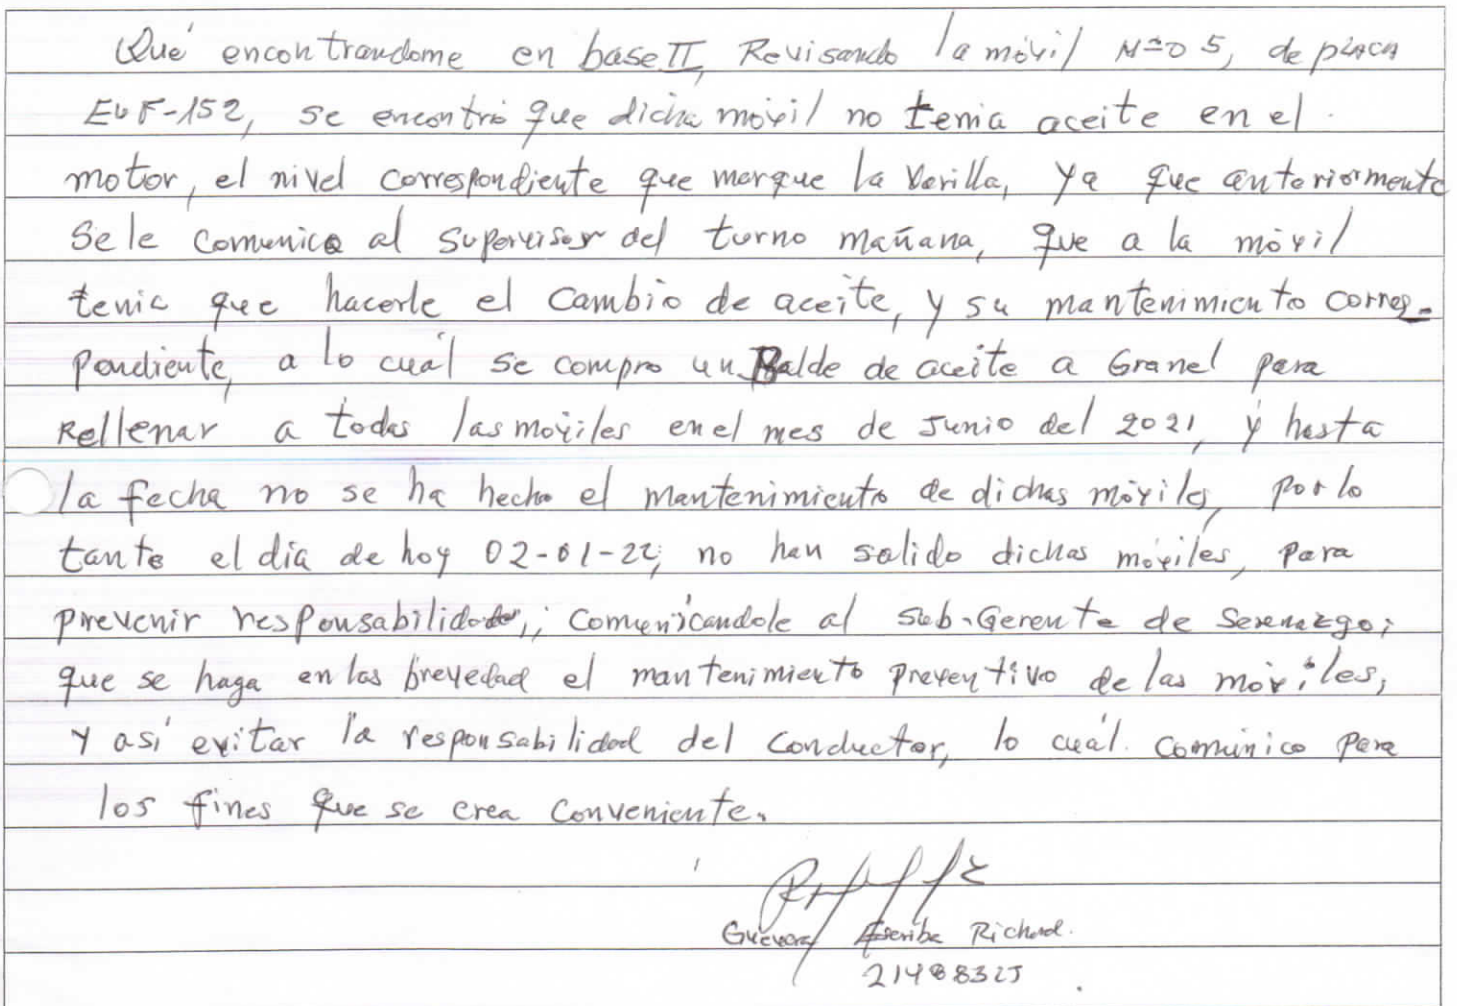 Qué encontrandome en base II, Revisando la móvil N=o 5, de placa
EUF-152, se encontró que dicha móvil no tenia aceite en el
motor, el nivel correspondiente que marque la Varilla, ya que anteriormente
se le comunico al supervisor del turno mañana, que a la móvil
tenia que hacerle el cambio de aceite, y su mantenimiento corres-
pondiente, a lo cuál se compro un Balde de aceite a Granel para
Rellenar a todas las móviles en el mes de Junio del 2021, y hasta
la fecha no se ha hecho el mantenimiento de dichas móviles, por lo
tanto el día de hoy 02-01-22, no han salido dichas móviles, para
prevenir responsabilidades,; comunicandole al sub-Gerente de Serenazgo;
que se haga en las brevedad el mantenimiento preventivo de las móviles,
y así evitar la responsabilidad del conductor, lo cuál comúnico para
los fines que se crea conveniente.
Guevara Escriba Richard.
21488325